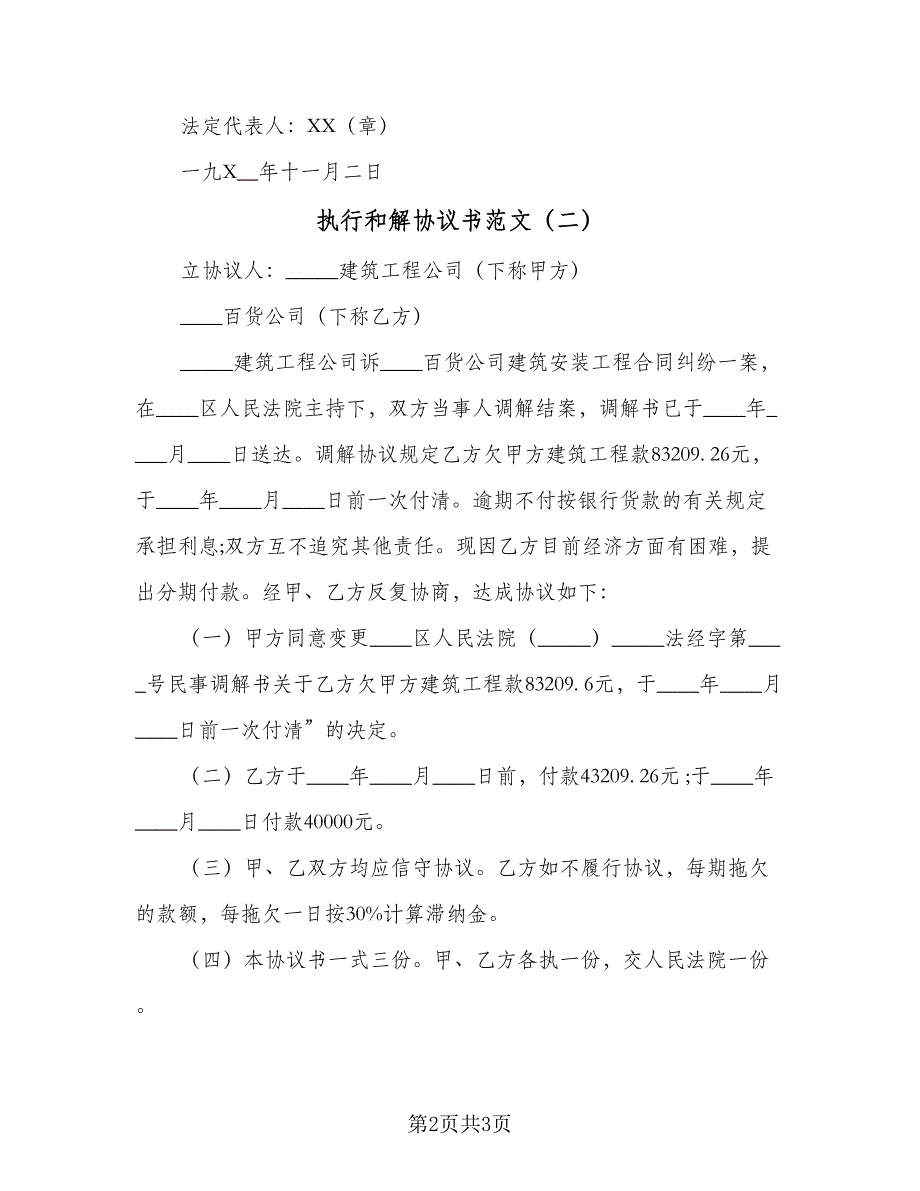 法定代表人：XX（章）
一九X__年十一月二日
执行和解协议书范文（二）
立协议人：_____建筑工程公司（下称甲方）
____百货公司（下称乙方）
_____建筑工程公司诉____百货公司建筑安装工程合同纠纷一案，
在____区人民法院主持下，双方当事人调解结案，调解书已于____年_
___月____日送达。调解协议规定乙方欠甲方建筑工程款83209.26元，
于____年____月____日前一次付清。逾期不付按银行货款的有关规定
承担利息;双方互不追究其他责任。现因乙方目前经济方面有困难，提
出分期付款。经甲、乙方反复协商，达成协议如下：
（一）甲方同意变更____区人民法院（_____）_____法经字第___
_号民事调解书关于乙方欠甲方建筑工程款83209.6元，于____年____月
____日前一次付清”的决定。
（二）乙方于____年____月____日前，付款43209.26元;于____年
____月____日付款40000元。
（三）甲、乙双方均应信守协议。乙方如不履行协议，每期拖欠
的款额，每拖欠一日按30%计算滞纳金。
（四）本协议书一式三份。甲、乙方各执一份，交人民法院一份
。
第2页共3页